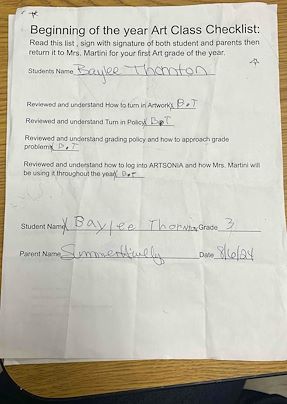 Beginning of the year Art Class Checklist:
Read this list , sign with signature of both student and parents then
return it to Mrs. Martini for your first Art grade of the year.
Students Name Baylee Thornton
Reviewed and understand How to turn in Artwork X B.T
Reviewed and understand Turn in Policy X B.T
Reviewed and understand grading policy and how to approach grade
problems X B.T
Reviewed and understand how to log into ARTSONIA and how Mrs. Martini will
be using it throughout the year X B.T
Student Name X Baylee Thornton Grade 3
Parent Name Date 8/6/24